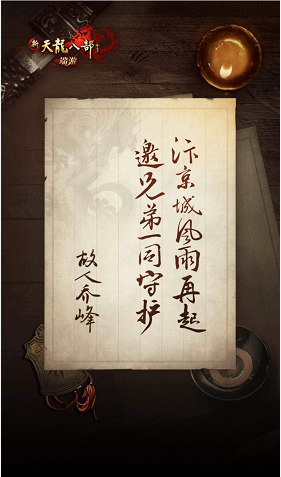 新天龍八部
端游
汴京城风雨再起
邀兄弟一同守护
故人乔峰